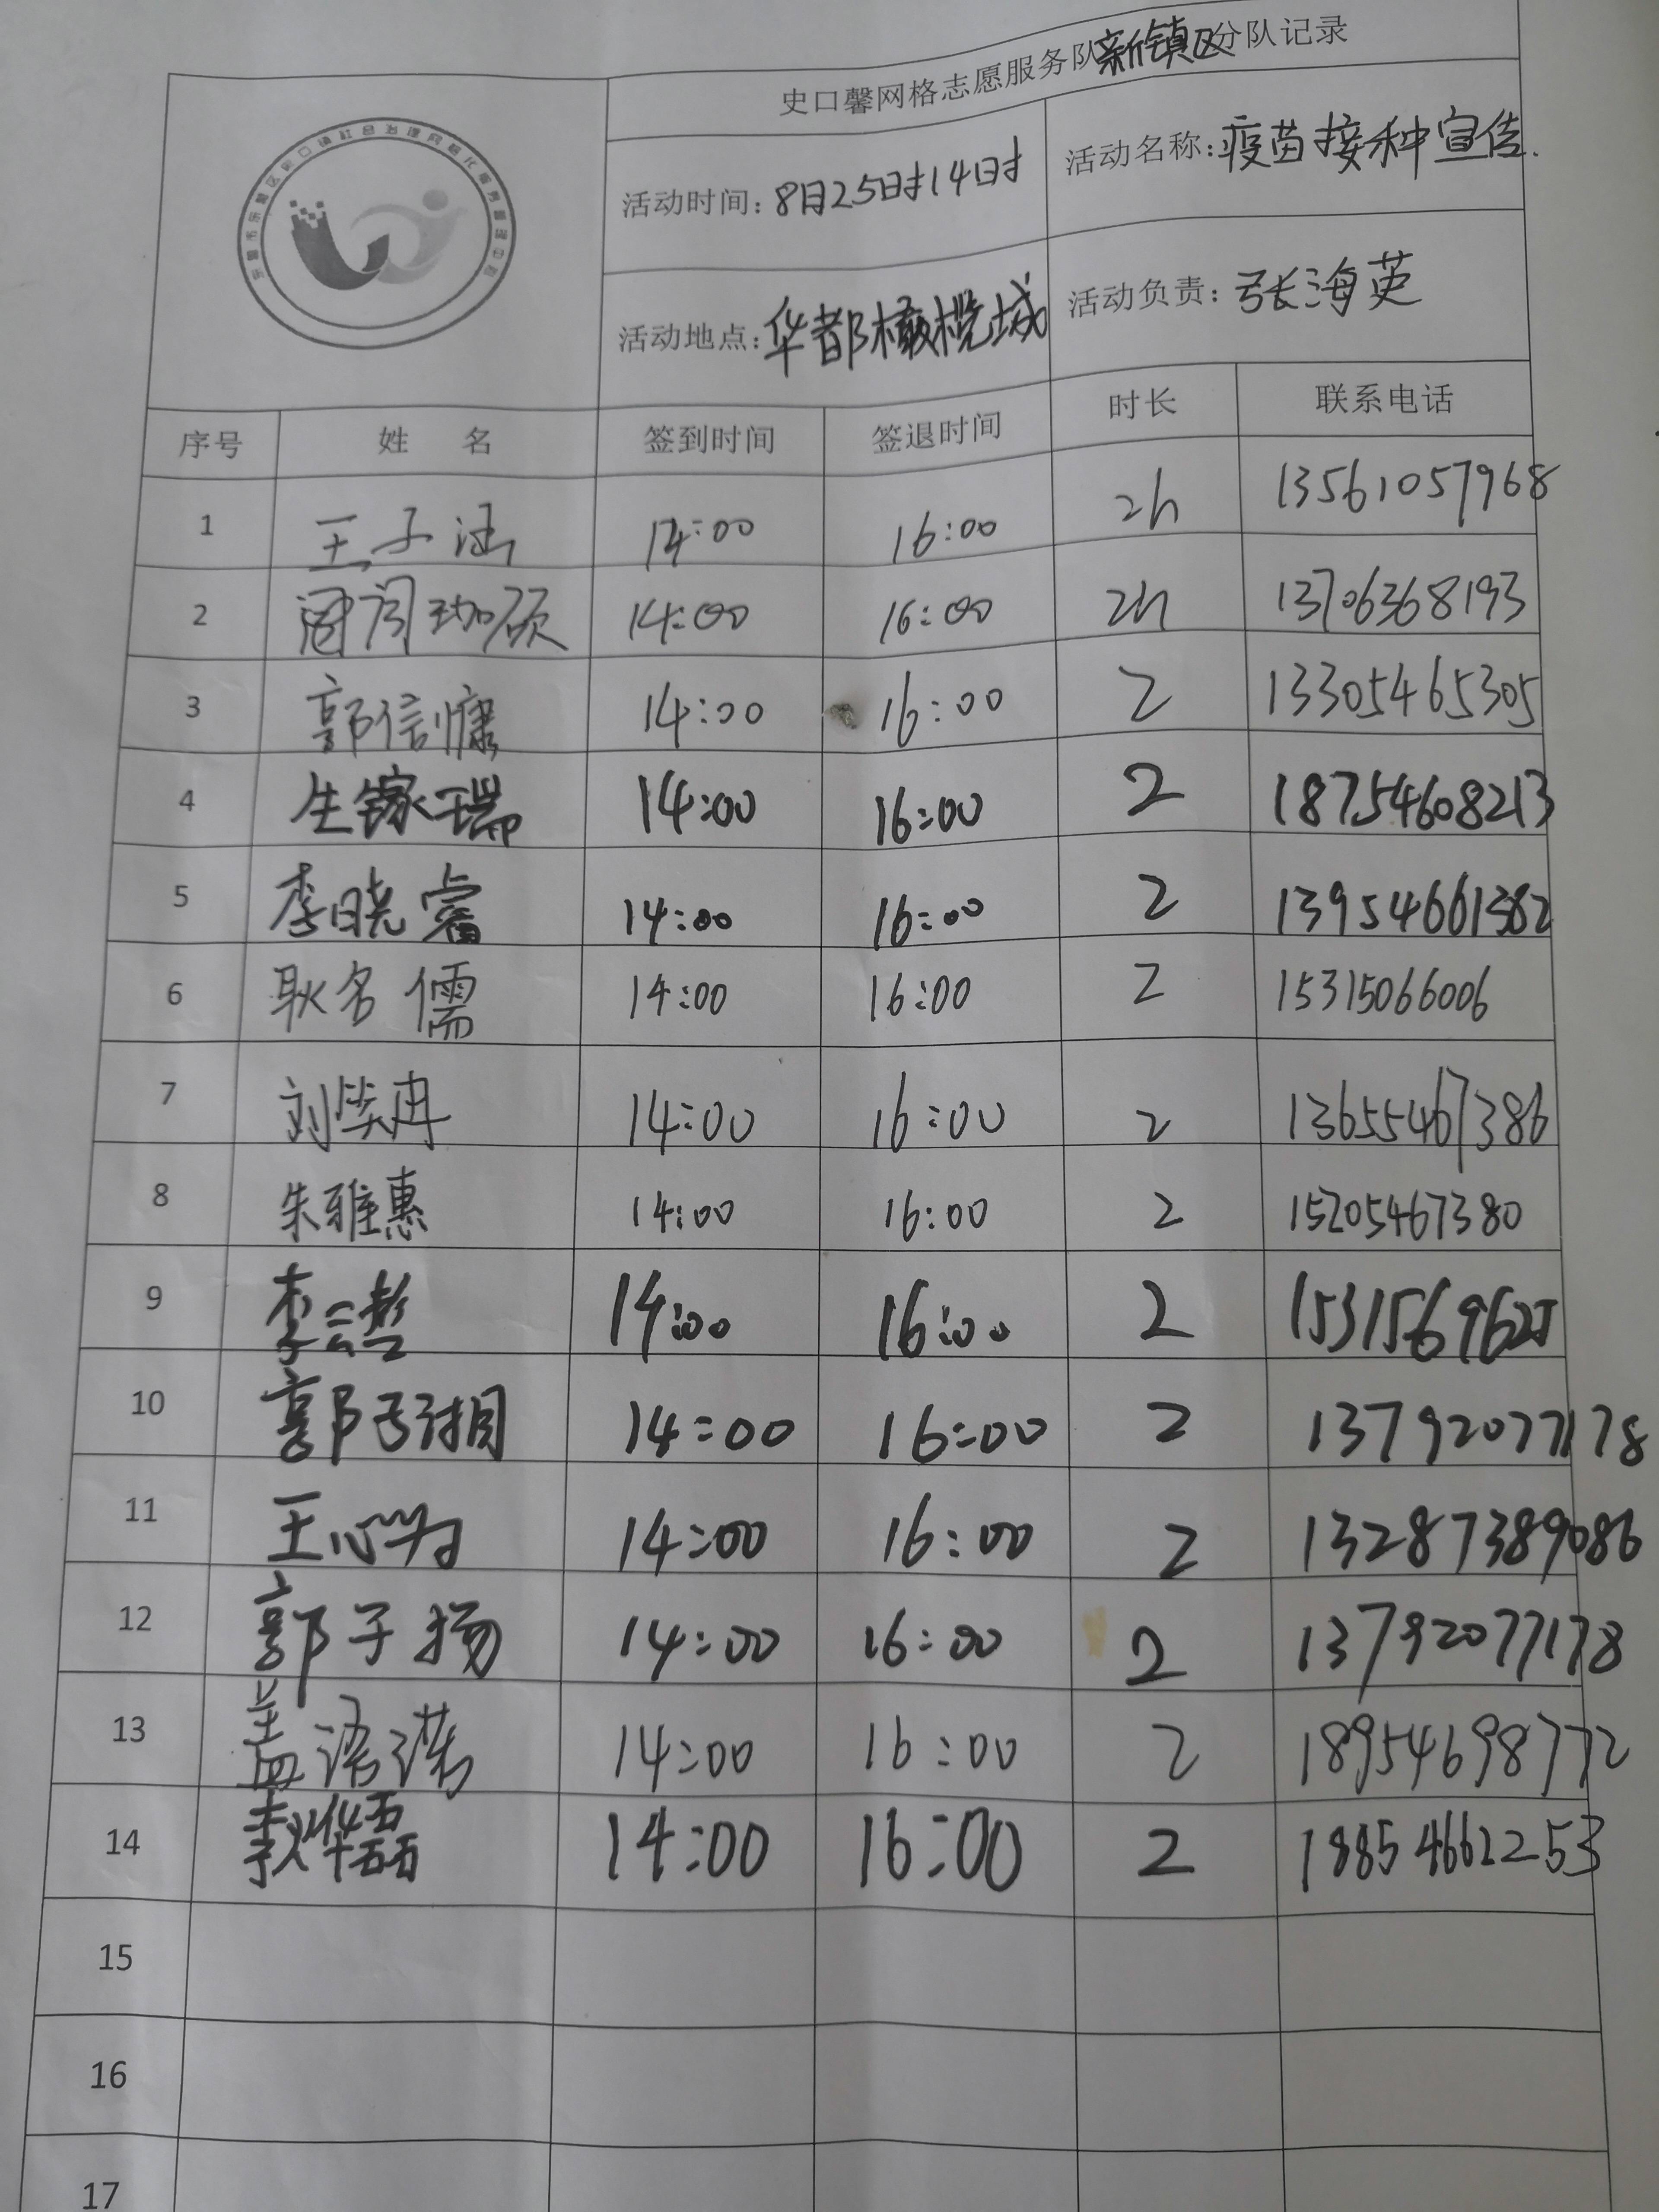 史口馨网格志愿服务队新镇区分队记录
活动时间：8日25日时14日时 活动名称：疫苗接种宣传.
活动地点：华都橄榄城 活动负责：张海英
序号 姓 名 签到时间 签退时间 时长 联系电话
1 王子涵 14:00 16:00 2h 13561057968
2 14:00 16:00 2h 13706368193
3 郭信慷 14:00 16:00 2 13305465305
4 生镓瑞 14:00 16:00 2 18754608213
5 李晓睿 14:00 16:00 2 13954661382
6 耿名儒 14:00 16:00 2 15315066006
7 刘笑冉 14:00 16:00 2 13655467386
8 朱雅惠 14:00 16:00 2 15205467380
9 14:00 16:00 2 15315696625
10 14:00 16:00 2 13792077178
11 14:00 16:00 2 13287389086
12 郭子扬 14:00 16:00 2 13792077178
13 盖语诺 14:00 16:00 2 18954698772
14 14:00 16:00 2 18854662253
15
16
17